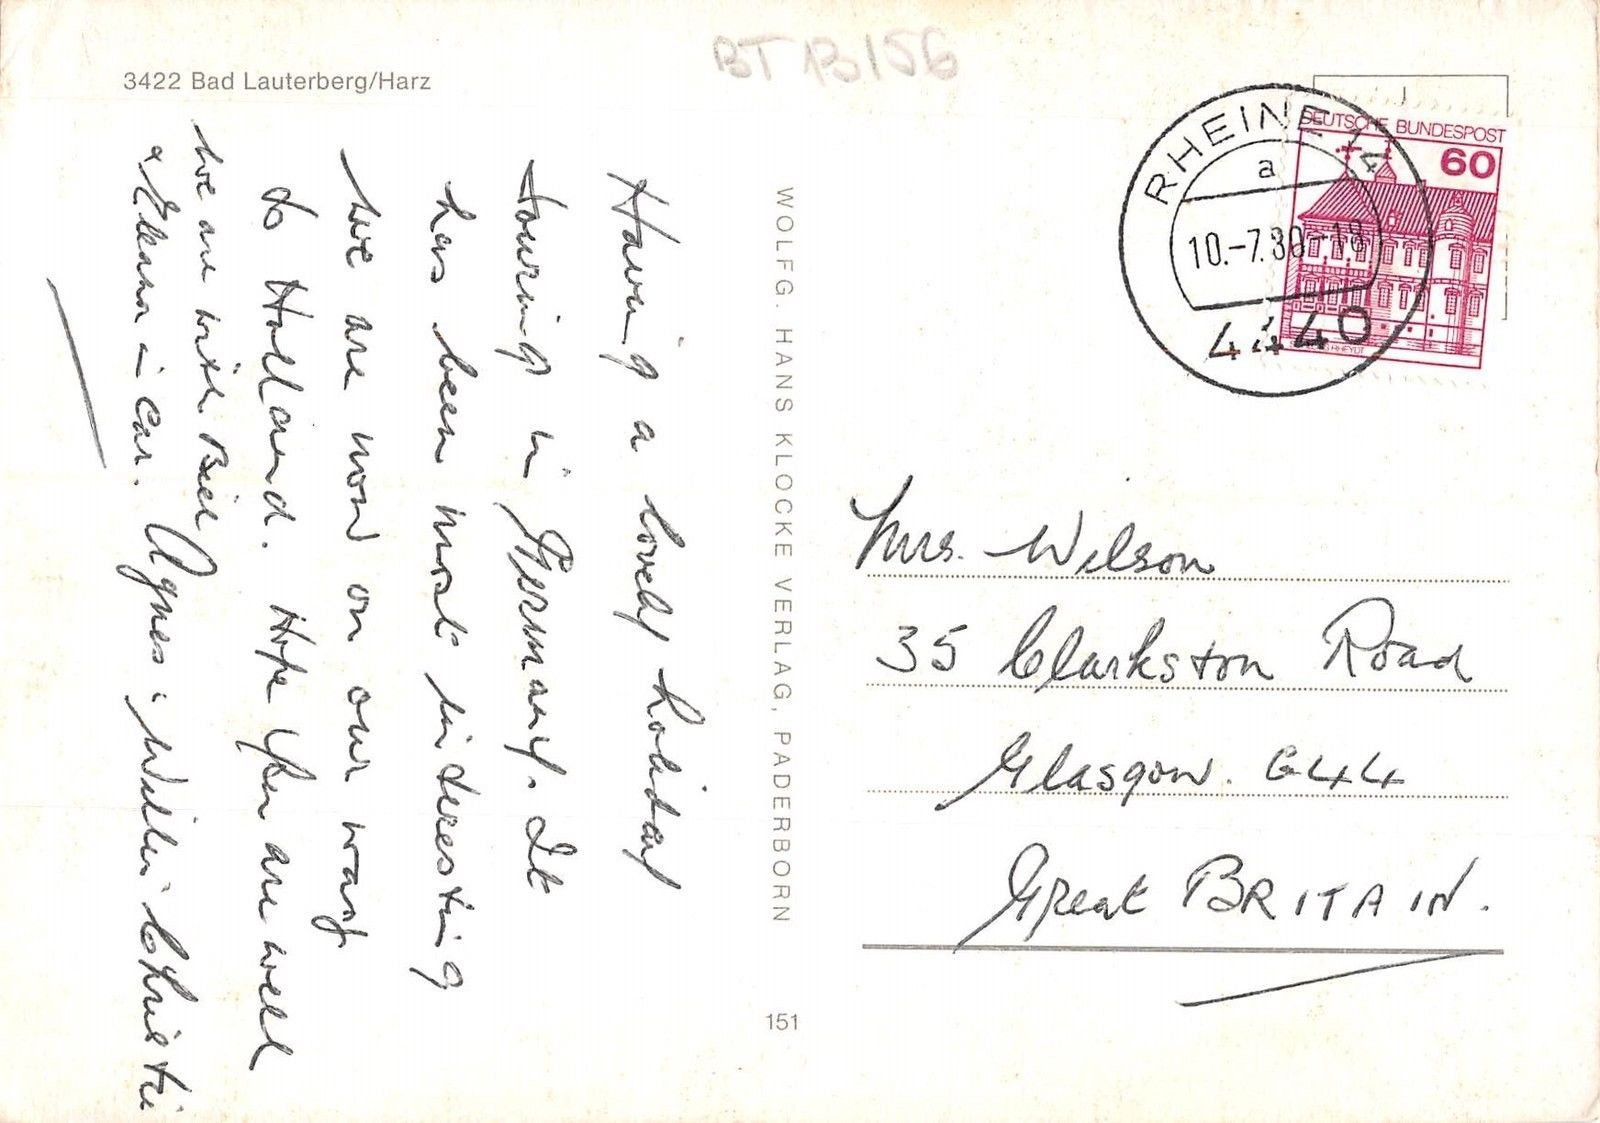 BT 13/156
3422 Bad Lauterberg/Harz
Having a lovely holiday
touring in Germany. It
has been most interesting
we are now on our way
to Holland. Hope you are well
We are with Bill
& Eleanor in car. Agnes & Willie Christie
WOLFG. HANS KLOCKE VERLAG, PADERBORN
151
RHEINE 14
a
10.-7.80-18
4440
DEUTSCHE BUNDESPOST
60
RHEYDT
Mrs. Wilson
35 Clarkston Road
Glasgow. G44
Great BRITAIN.